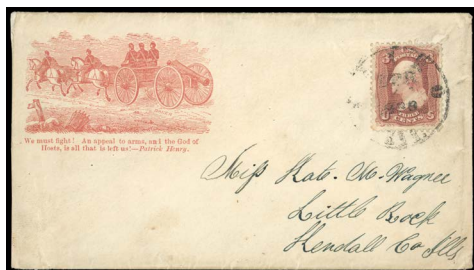 We must fight! An appeal to arms, and the God of
Hosts, is all that is left us!—Patrick Henry.
3
THREE
CENTS
Miss Kate. M. Wagner
Little Rock
Kendall Co Ills